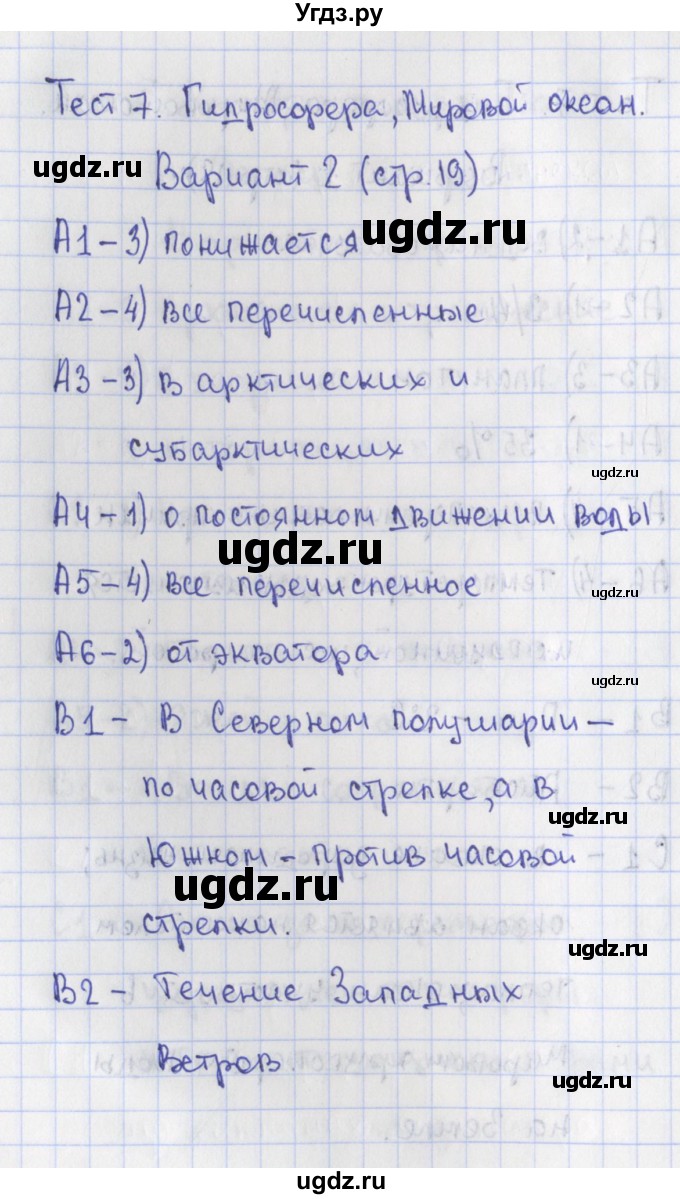 Угдз.ру
Тест 7. Гидросфера, Мировой океан.
ugdz.ru
Вариант 2 (стр. 19)
А1 – 3) понижается
ugdz.ru
А2 – 4) все перечисленные
А3 – 3) в арктических и
субарктических
ugdz.ru
А4 – 1) о постоянном движении воды
ugdz.ru
А5 – 4) все перечисленное
ugdz.ru
А6 – 2) от экватора
ugdz.ru
В1 – В Северном полушарии –
по часовой стрелке, а в
ugdz.ru
Южном – против часовой
ugdz.ru
стрелки.
ugdz.ru
В2 – Течение Западных
Ветров.
ugdz.ru
ugdz.ru